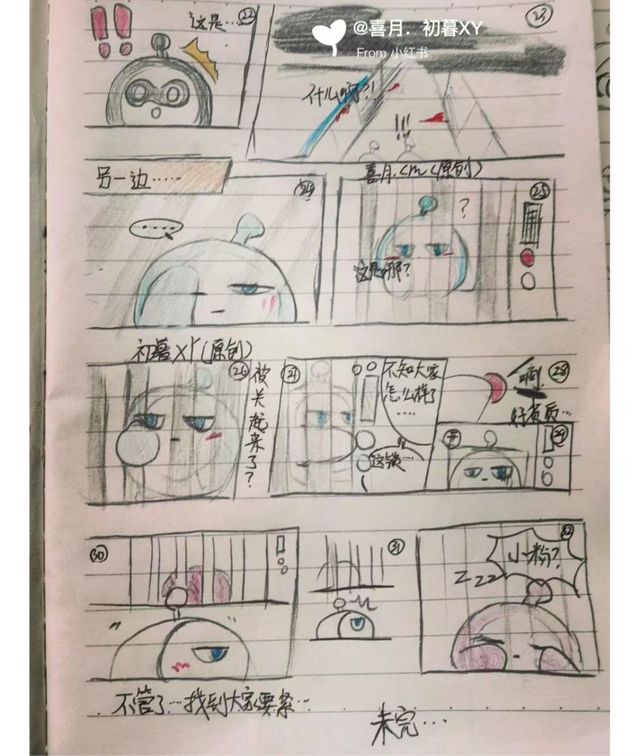 @喜月．初暮XY
From 小红书
!!
这是…
22
23
什么啊?!
!!!
另一边……
24
喜月.cm(原创)
25
……
?
这是哪?
初暮XY(原创)
26
被关起来了?
不知大家
怎么样了
……
这锁…
28
啊!
29
#
30
31
32
小粉?
zzz
不管了…找到大家要紧…
未完…